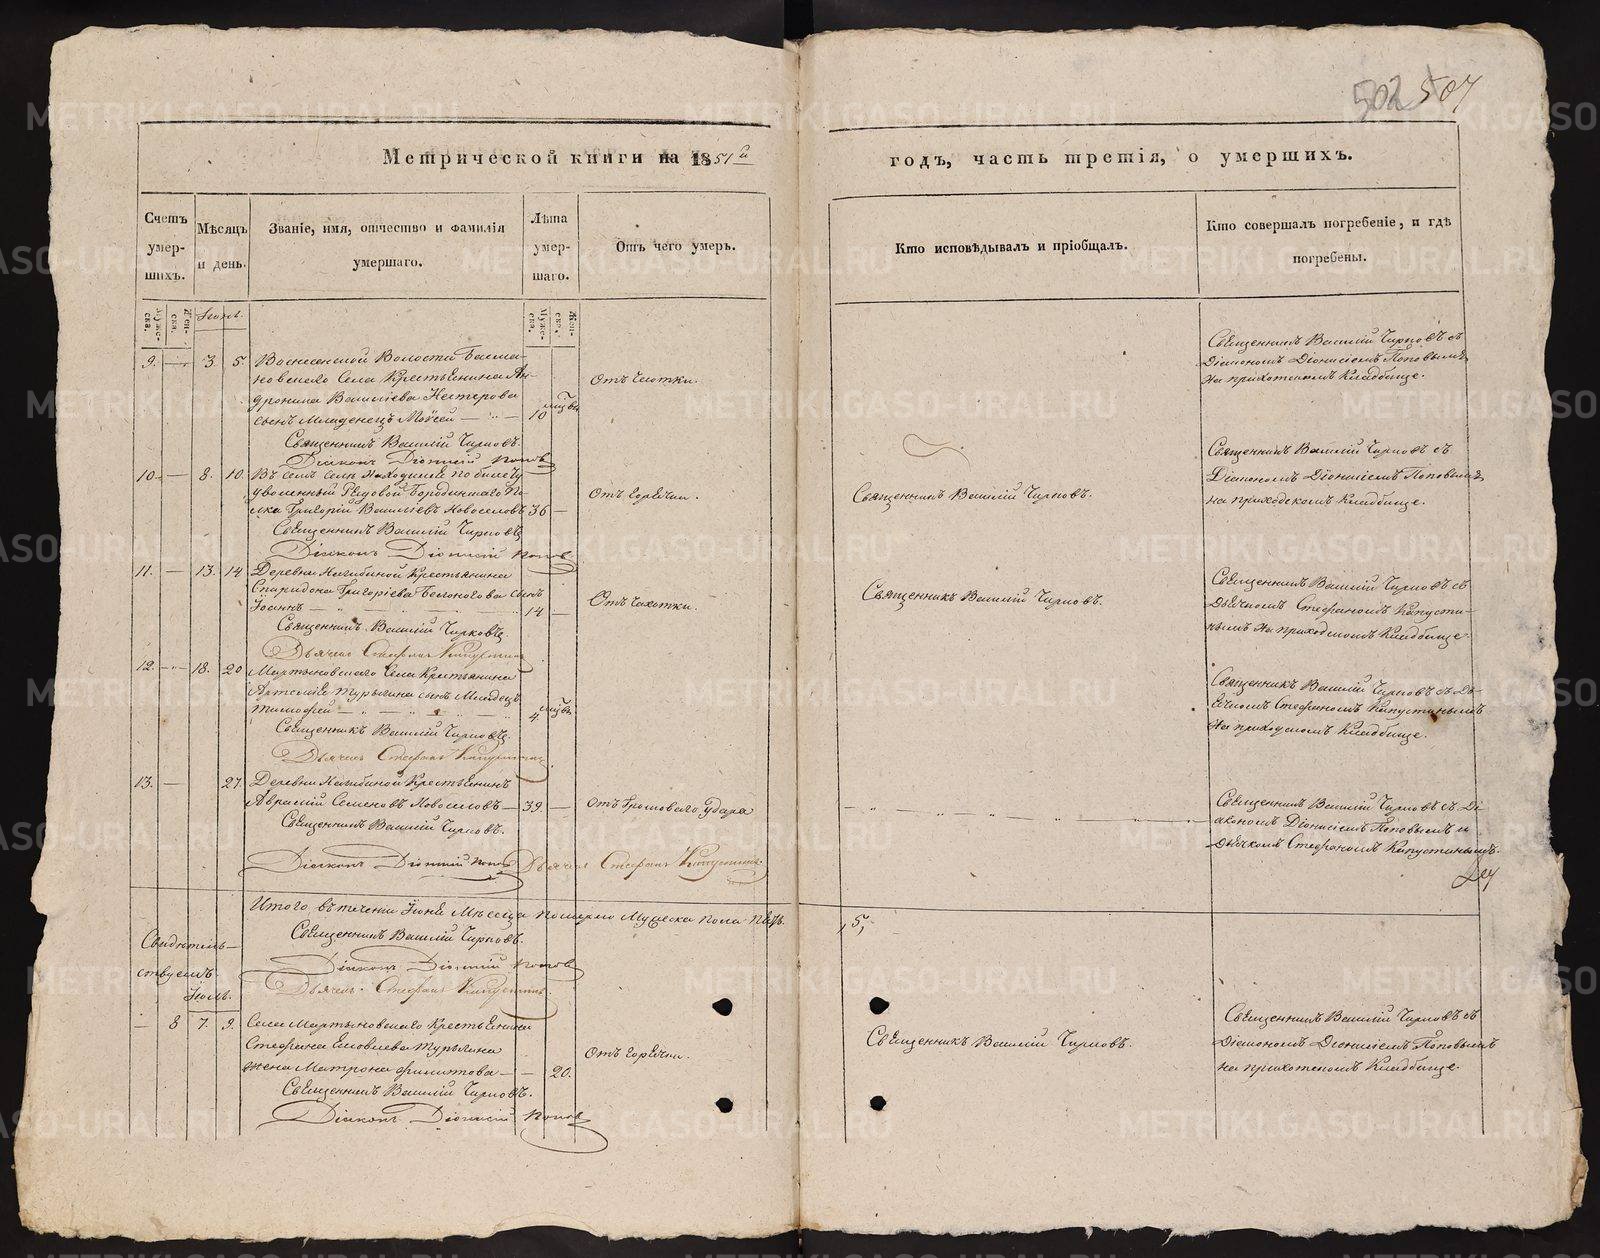 502 507
Метрической книги на 1851й
годъ, часть третія, о умершихъ.
Счетъ умер-шихъ.
Мѣсяцъ и день.
Званіе, имя, отчество и фамилія умершаго.
Лѣта умер-шаго.
Отъ чего умеръ.
Кто исповѣдывалъ и пріобщалъ.
Кто совершалъ погребеніе, и гдѣ погребены.
Муже-ска.
Жен-ска.
Іюнь.
Муже-ска.
Жен-ска.
9. — 3 5. Вознесенской Волости
новскаго Села Крестьянина Ан-
дроника Васильева Нестерова
сынъ Младенецъ Мойсей — 10
Священникъ Василій Чирковъ.
Діаконъ Діонисій Поповъ
Священникъ Василій Чирковъ съ
Діакономъ Діонисіемъ Поповымъ
на приходскомъ Кладбище.
10. — 8. 10. Въ семъ селѣ находящійся по билету
уволенный Рядовой Бородинскаго По-
лка Григорій Васильевъ Новоселовъ 36 —
Отъ горячки.
Священникъ Василій Чирковъ.
Діаконъ Діонисій Поповъ
Священникъ Василій Чирковъ.
Священникъ Василій Чирковъ съ
Діакономъ Діонисіемъ Поповымъ
на приходскомъ Кладбище.
11. — 13. 14 Деревни Нагибиной Крестьянина
Спиридона Григоріева Белоногова сынъ
Іоаннъ — 14 —
Отъ чахотки.
Священникъ Василій Чирковъ.
Дьячекъ Стефанъ Капустинъ
Священникъ Василій Чирковъ.
Священникъ Василій Чирковъ съ
Дьячкомъ Стефаномъ Капусти-
нымъ на приходскомъ Кладбище.
12. — 18. 20 Мартыновскаго Села Крестьянина
Тимофей — 4
Священникъ Василій Чирковъ.
Дьячекъ Стефанъ Капустинъ
Священникъ Василій Чирковъ съ Дья-
ячкомъ Стефаномъ Капустинымъ
на приходскомъ Кладбище.
13. — 27. Деревни Нагибиной Крестьянинъ
Аврамій Семеновъ Новоселовъ — 39. —
Отъ громоваго удара
Священникъ Василій Чирковъ.
Діаконъ Діонисій Поповъ Дьячекъ Стефанъ Капустинъ
Священникъ Василій Чирковъ съ Ді-
акономъ Діонисіемъ Поповымъ и
Дьячкомъ Стефаномъ Капустинымъ.
Итого въ теченіи Іюня Мѣсяца померло Мужеска пола пять.
5,
Священникъ Василій Чирковъ.
Діаконъ Діонисій Поповъ
Дьячекъ Стефанъ Капустинъ
Свидѣтель-
ствуемъ
Іюль.
— 8 7. 9. Села Мартыновскаго Крестьянина
жена Матрона Филиппова — 20.
Отъ горячки.
Священникъ Василій Чирковъ.
Діаконъ Діонисій Поповъ
Священникъ Василій Чирковъ.
Священникъ Василій Чирковъ съ
Діакономъ Діонисіемъ Поповымъ
на приходскомъ Кладбище.
METRIKI.GASO-URAL.RU